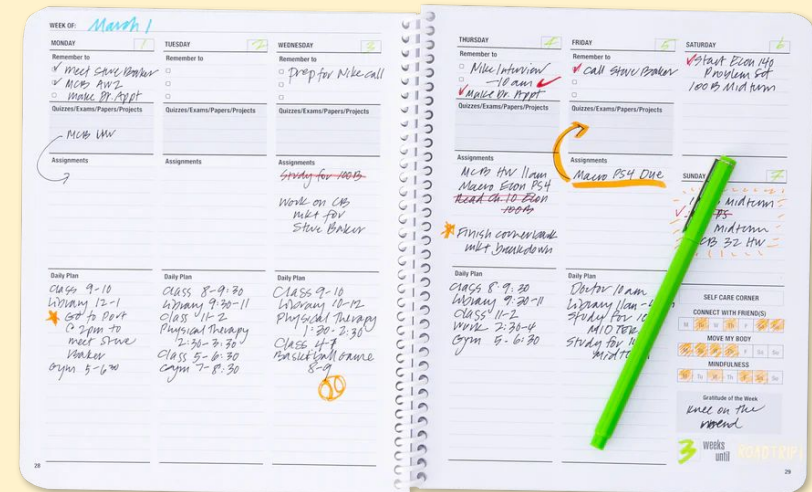 WEEK OF: March 1
MONDAY 1
Remember to
meet Steve Baker
MCB AW2
make Dr. Appt
Quizzes/Exams/Papers/Projects
MCB HW
Assignments
Daily Plan
Class 9-10
Library 12-1
Go to Port
@ 2pm to
meet Steve
Baker
Gym 5-6
28
TUESDAY 2
Remember to
Quizzes/Exams/Papers/Projects
Assignments
Daily Plan
Class 8-9:30
Library 9:30-11
Class 11-2
Physical Therapy
2:30-3:30
Class 5-6:30
Gym 7-8:30
WEDNESDAY 3
Remember to
Prep for Nike call
Quizzes/Exams/Papers/Projects
Assignments
Study for 100B
Work on CB
mkt for
Steve Baker
Daily Plan
Class 9-10
Library 10-12
Physical Therapy
1:30-2:30
Class 4-
Basketball Game
8-9
THURSDAY 4
Remember to
Nike Interview
-10am
Make Dr. Appt
Quizzes/Exams/Papers/Projects
Assignments
MCB HW 11am
Macro Econ PS4
Read Ch 10 Econ
100B
Finish cornerback
mkt breakdown
Daily Plan
Class 8-9:30
Library 9:30-11
Class 11-2
Work 2:30-4
Gym 5-6:30
FRIDAY 5
Remember to
Call Steve Baker
Quizzes/Exams/Papers/Projects
Assignments
Macro PS4 Due
Daily Plan
Doctor 10am
Library 11am-
Study for 10
MIDTER
Study for 10
midt
SATURDAY 6
Start Econ 140
Problem Set
100B Midterm
SUNDAY 7
Midterm
PS
Midterm
CB 32 HW
SELF CARE CORNER
CONNECT WITH FRIEND(S)
MOVE MY BODY
MINDFULNESS
Gratitude of the Week
Knee on the
mend
3 weeks
until ROADTRIP!
29